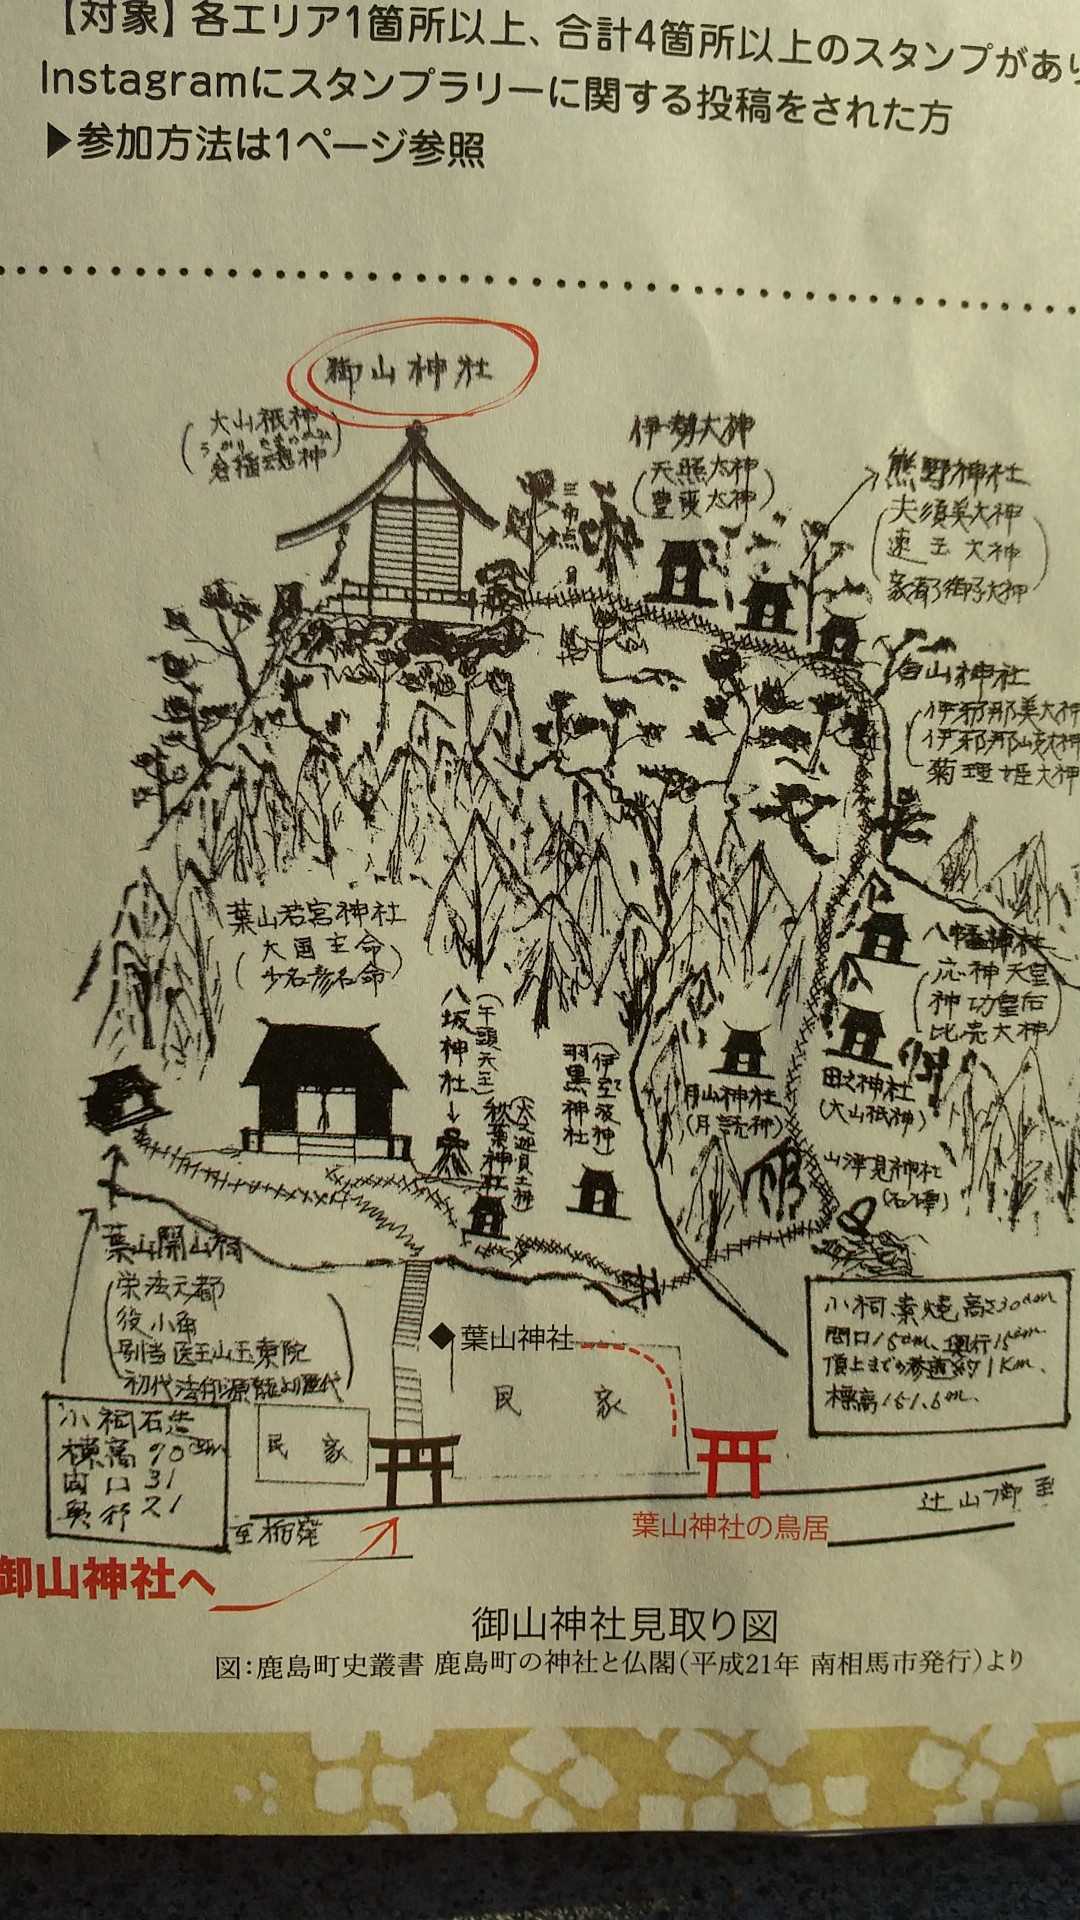 【対象】各エリア1箇所以上、合計4箇所以上のスタンプがあり
Instagramにスタンプラリーに関する投稿をされた方
▶参加方法は1ページ参照
御山神社
(大山祇神
倉稲魂神)
三角点
伊勢大神
(天照大神
豊受大神)
熊野神社
(夫須美大神
速玉大神
家都御子大神)
白山神社
(伊邪那美大神
伊邪那岐大神
菊理姫大神
葉山若宮神社
(大国主命
少名彦名命)
八坂神社
(牛頭天王)
秋葉神社
羽黒神社
月山神社
(月読神)
八幡神社
(応神天皇
神功皇后
比売大神)
田之神社
(大山祇神)
山津見神社
(石碑)
葉山開山祠
(栄法元都
役小角
別当医王山玉東院
初代法印源
小祠石造
棟高90
間口31
奥行21
小祠素焼高さ30cm
間口15cm、奥行15cm
頂上までの参道約1Km、
標高151.6m、
◆葉山神社
民家
民家
至栃窪
葉山神社の鳥居
御山神社へ
御山神社見取り図
図:鹿島町史叢書 鹿島町の神社と仏閣(平成21年 南相馬市発行)より